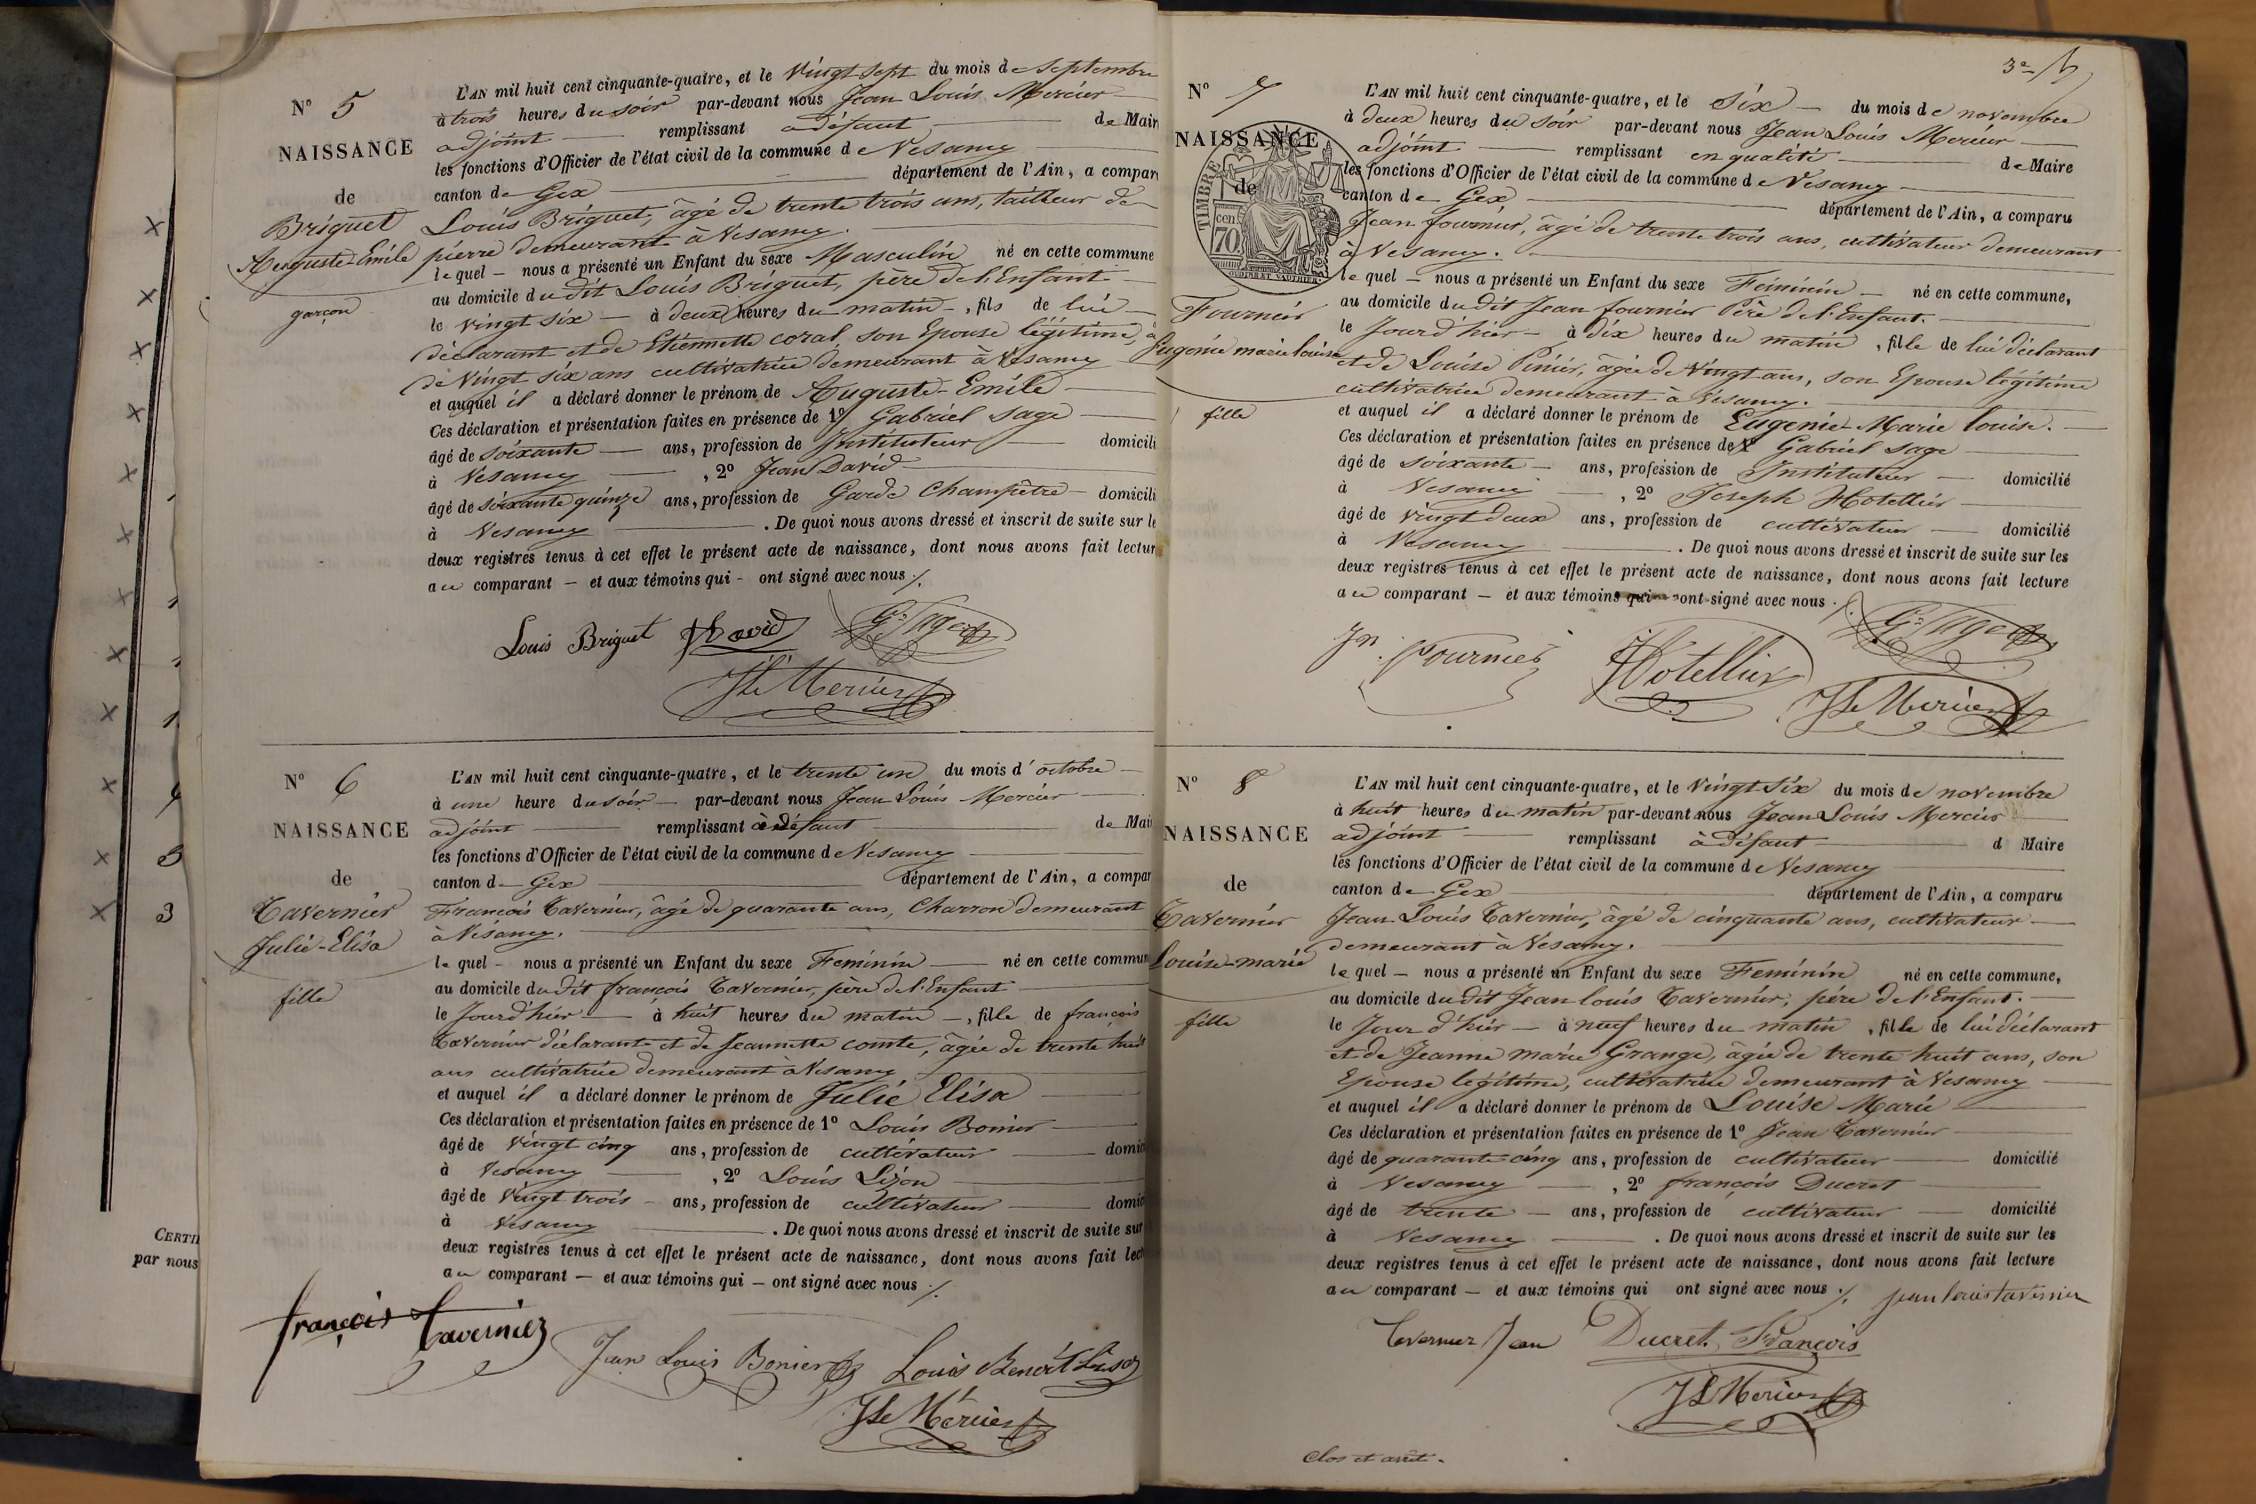 N° 5
NAISSANCE
de
Briguet
Auguste-Emile
garçon
L'AN mil huit cent cinquante-quatre, et le Vingt sept du mois de Septembre
à trois heures du soir par-devant nous Jean Louis Mercier
adjoint remplissant a défaut de Mair
les fonctions d'Officier de l'état civil de la commune de Vesancy
canton de Gex département de l'Ain, a compar
Louis Briguet, âgé de trente trois ans, tailleur de
pierre demeurant à Vesancy.
lequel nous a présenté un Enfant du sexe Masculin né en cette commune
au domicile dudit Louis Briguet, père de l'Enfant
le vingt six à deux heures du matin, fils de lui
déclarant et de Etiennette coral, son Epouse légitime, à
de Vingt six ans cultivatrice demeurant à Vesancy
et auquel il a déclaré donner le prénom de Auguste-Emile
Ces déclaration et présentation faites en présence de 1° Gabriel Sage
âgé de soixante ans, profession de Instituteur domicili
à Vesancy, 2° Jean David
âgé de soixante quinze ans, profession de Garde Champêtre domicili
à Vesancy. De quoi nous avons dressé et inscrit de suite sur le
deux registres tenus à cet effet le présent acte de naissance, dont nous avons fait lectur
au comparant et aux témoins qui ont signé avec nous ./.
Louis Briguet David G. Sage
JLs Mercier
N° 6
NAISSANCE
de
Tavernier
Julie-Elisa
fille
L'AN mil huit cent cinquante-quatre, et le trente un du mois d'octobre
à une heure du soir par-devant nous Jean Louis Mercier
adjoint remplissant à défaut de Mai
les fonctions d'Officier de l'état civil de la commune de Vesancy
canton de Gex département de l'Ain, a compar
François Tavernier, âgé de quarante ans, Charron demeurant
à Vesancy.
lequel nous a présenté un Enfant du sexe Feminin né en cette commun
au domicile dudit françois Tavernier, père de l'Enfant
le Jourd'hier à huit heures du matin, fille de françois
Tavernier déclarante et de Jeannette comte, âgée de trente huit
ans cultivatrice demeurant à Vesancy
et auquel il a déclaré donner le prénom de Julie Elisa
Ces déclaration et présentation faites en présence de 1° Louis Bonier
âgé de vingt cinq ans, profession de cultivateur domic
à Vesancy, 2° Louis Lizon
âgé de Vingt trois ans, profession de cultivateur domic
à Vesancy. De quoi nous avons dressé et inscrit de suite sur
deux registres tenus à cet effet le présent acte de naissance, dont nous avons fait lect
au comparant et aux témoins qui ont signé avec nous ./.
françois Tavernier
Jean Louis Bonier Louis Benoît Lison
JLs Mercier
CERTI
par nous
3e
N° 7
NAISSANCE
de
TIMBRE
70 cen
Fournier
Eugénie marie louise
fille
L'AN mil huit cent cinquante-quatre, et le Six du mois de novembre
à deux heures du soir par-devant nous Jean Louis Mercier
adjoint remplissant en qualité de Maire
les fonctions d'Officier de l'état civil de la commune de Vesancy
canton de Gex département de l'Ain, a comparu
Jean fournier, âgé de trente trois ans, cultivateur demeurant
à Vesancy.
lequel nous a présenté un Enfant du sexe Feminin né en cette commune,
au domicile dudit Jean fournier Père de l'Enfant.
le Jourd'hier à dix heures du matin, fille de lui déclarant
et de Louise Pinier, âgée de Vingt ans, son Epouse légitime
cultivatrice demeurant à Vesancy.
et auquel il a déclaré donner le prénom de Eugenie Marie louise.
Ces déclaration et présentation faites en présence de 1° Gabriel Sage
âgé de soixante ans, profession de Instituteur domicilié
à Vesancy, 2° Joseph Hotellier
âgé de vingt deux ans, profession de cultivateur domicilié
à Vesancy. De quoi nous avons dressé et inscrit de suite sur les
deux registres tenus à cet effet le présent acte de naissance, dont nous avons fait lecture
au comparant et aux témoins qui ont signé avec nous ./.
Jn. Fournier JHotellier G. Sage
JLs Mercier
N° 8
NAISSANCE
de
Tavernier
Louise-marie
fille
L'AN mil huit cent cinquante-quatre, et le Vingt Six du mois de novembre
à huit heures du matin par-devant nous Jean Louis Mercier
adjoint remplissant à défaut d Maire
les fonctions d'Officier de l'état civil de la commune de Vesancy
canton de Gex département de l'Ain, a comparu
Jean Louis Tavernier, âgé de cinquante ans, cultivateur
demeurant à Vesancy.
lequel nous a présenté un Enfant du sexe Feminin né en cette commune,
au domicile dudit Jean louis Tavernier, père de l'Enfant.
le Jour d'hier à neuf heures du matin, fille de lui déclarant
et de Jeanne marie Grange, âgée de trente huit ans, son
Epouse légitime, cultivatrice demeurant à Vesancy
et auquel il a déclaré donner le prénom de Louise Marie
Ces déclaration et présentation faites en présence de 1° Jean Tavernier
âgé de quarante cinq ans, profession de cultivateur domicilié
à Vesancy, 2° françois Ducret
âgé de trente ans, profession de cultivateur domicilié
à Vesancy. De quoi nous avons dressé et inscrit de suite sur les
deux registres tenus à cet effet le présent acte de naissance, dont nous avons fait lecture
au comparant et aux témoins qui ont signé avec nous ./. jean louis tavernier
Tavernier Jean Ducret François
JLs Mercier
Clos et arrêté.